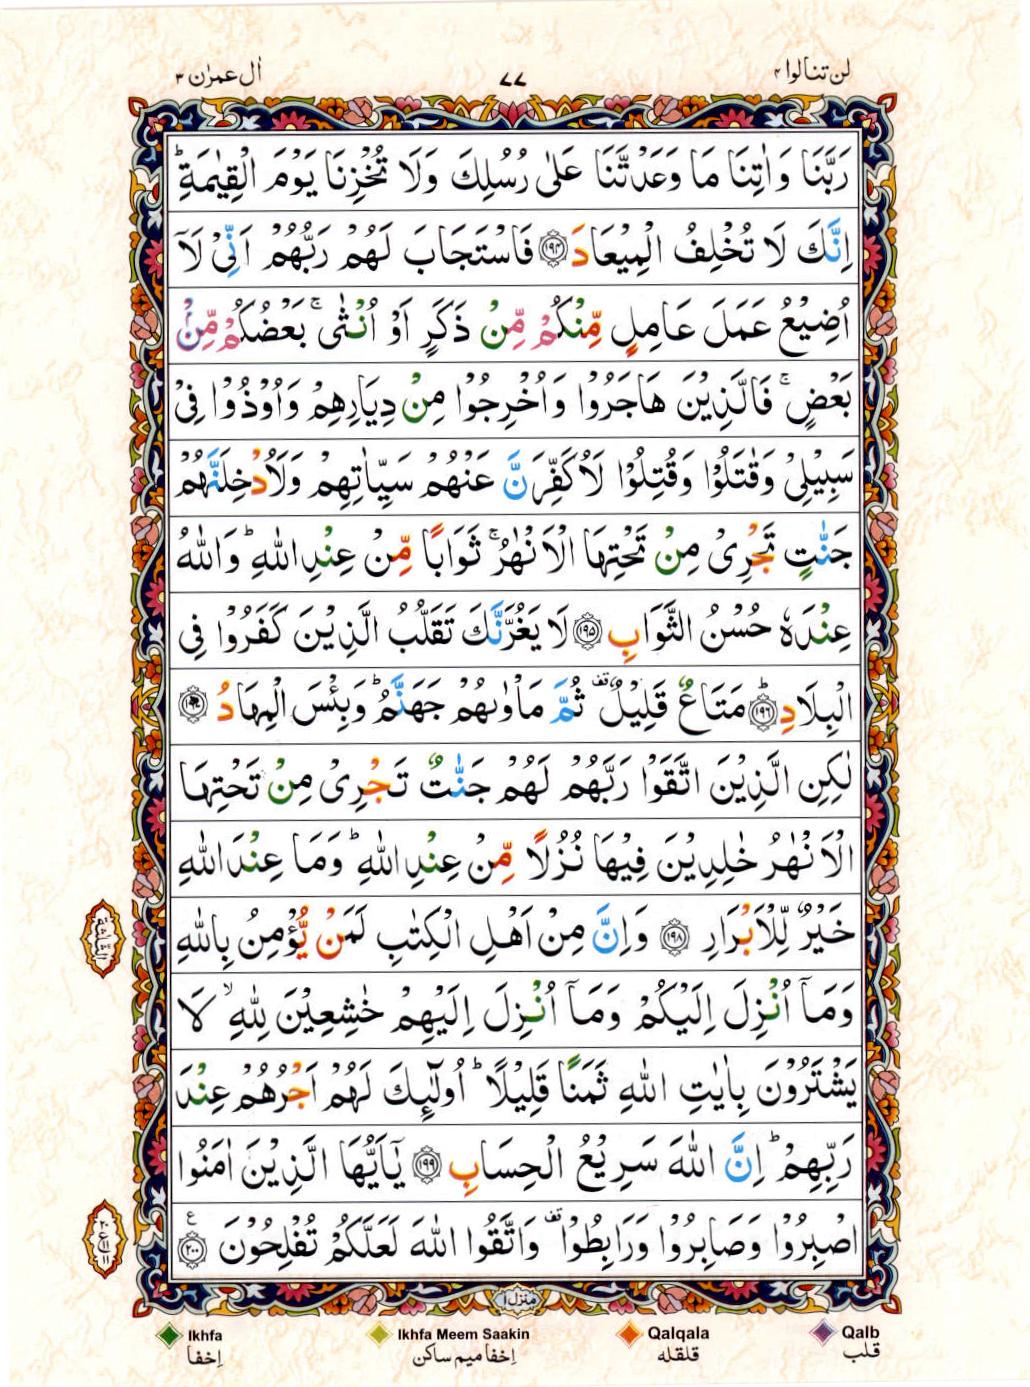 لن تنالوا ۴
۷۷
اٰل عمرٰن ۳
رَبَّنَا وَاٰتِنَا مَا وَعَدْتَّنَا عَلٰى رُسُلِكَ وَلَا تُخْزِنَا يَوْمَ الْقِيٰمَةِ ؕ
اِنَّكَ لَا تُخْلِفُ الْمِيْعَادَ ﴿۱۹۴﴾ فَاسْتَجَابَ لَهُمْ رَبُّهُمْ اَنِّىْ لَاۤ
اُضِيْعُ عَمَلَ عَامِلٍ مِّنْكُمْ مِّنْ ذَكَرٍ اَوْ اُنْثٰى ۚ بَعْضُكُمْ مِّنْۢ
بَعْضٍ ۚ فَالَّذِيْنَ هَاجَرُوْا وَاُخْرِجُوْا مِنْ دِيَارِهِمْ وَاُوْذُوْا فِىْ
سَبِيْلِىْ وَقٰتَلُوْا وَقُتِلُوْا لَاُكَفِّرَنَّ عَنْهُمْ سَيِّاٰتِهِمْ وَلَاُدْخِلَنَّهُمْ
جَنّٰتٍ تَجْرِىْ مِنْ تَحْتِهَا الْاَنْهٰرُ ۚ ثَوَابًا مِّنْ عِنْدِ اللّٰهِ ؕ وَاللّٰهُ
عِنْدَهٗ حُسْنُ الثَّوَابِ ﴿۱۹۵﴾ لَا يَغُرَّنَّكَ تَقَلُّبُ الَّذِيْنَ كَفَرُوْا فِى
الْبِلَادِ ؕ ﴿۱۹۶﴾ مَتَاعٌ قَلِيْلٌ قف ثُمَّ مَاْوٰىهُمْ جَهَنَّمُ ؕ وَبِئْسَ الْمِهَادُ ﴿۱۹۷﴾
لٰكِنِ الَّذِيْنَ اتَّقَوْا رَبَّهُمْ لَهُمْ جَنّٰتٌ تَجْرِىْ مِنْ تَحْتِهَا
الْاَنْهٰرُ خٰلِدِيْنَ فِيْهَا نُزُلًا مِّنْ عِنْدِ اللّٰهِ ؕ وَمَا عِنْدَ اللّٰهِ
خَيْرٌ لِّلْاَبْرَارِ ﴿۱۹۸﴾ وَاِنَّ مِنْ اَهْلِ الْكِتٰبِ لَمَنْ يُّؤْمِنُ بِاللّٰهِ
الثلٰثة
وَمَاۤ اُنْزِلَ اِلَيْكُمْ وَمَاۤ اُنْزِلَ اِلَيْهِمْ خٰشِعِيْنَ لِلّٰهِ ۙ لَا
يَشْتَرُوْنَ بِاٰيٰتِ اللّٰهِ ثَمَنًا قَلِيْلًا ؕ اُولٰٓئِكَ لَهُمْ اَجْرُهُمْ عِنْدَ
رَبِّهِمْ ؕ اِنَّ اللّٰهَ سَرِيْعُ الْحِسَابِ ﴿۱۹۹﴾ يٰۤاَيُّهَا الَّذِيْنَ اٰمَنُوا
اصْبِرُوْا وَصَابِرُوْا وَرَابِطُوْا قف وَاتَّقُوا اللّٰهَ لَعَلَّكُمْ تُفْلِحُوْنَ ﴿۲۰۰﴾ ع
۲۰ ع ۱۱ ۱۱
منزل ۱
Ikhfa Ikhfa Meem Saakin Qalqala Qalb
اِخفا اِخفا میم ساکن قلقله قلب